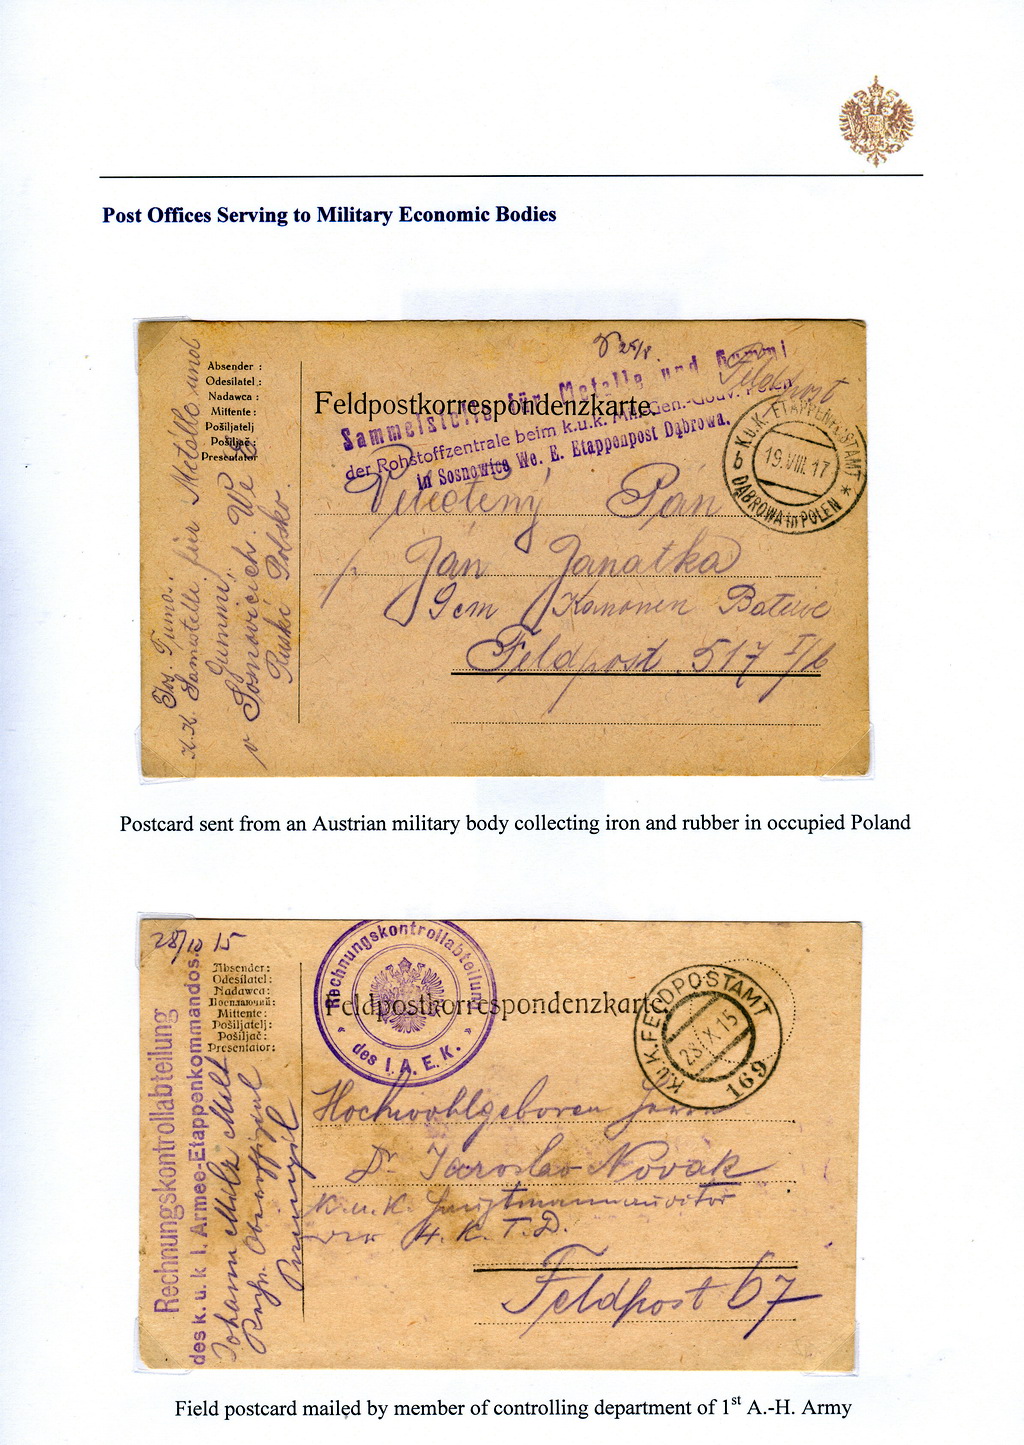 Post Offices Serving to Military Economic Bodies
Absender :
Odesílatel :
Nadawca :
Mittente :
Pošiljatelj
Pošiljač :
Presentator
K.K. Sammstelle für Metalle und
Gummi, We
v Sosnovicich
Ruské Polsko.
25/8.
Feldpost
Feldpostkorrespondenzkarte.
Sammelstelle für Metalle und Gummi
der Rohstoffzentrale beim k.u.k. Mil. Gen.-Gouv. Polen
in Sosnowice We. E. Etappenpost Dąbrowa.
K.u.K. ETAPPENPOSTAMT
b 19.VIII.17 *
DĄBROWA in POLEN
Veléctěný Pán
Jan Janatka
9cm Kanonen Baterie
Feldpost 517 I/b
Postcard sent from an Austrian military body collecting iron and rubber in occupied Poland
28/10 15
Absender:
Odesílatel:
Nadawca:
Посилаючий:
Mittente:
Pošiljatelj:
Pošiljač:
Presentator:
Rechnungskontrollabteilung
des k. u. k. I. Armee-Etappenkommandos.
Johann
Rechn. Oberoffizial
Rechnungskontrollabteilung
des I. A. E. K.
Feldpostkorrespondenzkarte
K.u.K. FELDPOSTAMT
28.X.15
169
Hochwohlgeboren Herrn
Dr. Jaroslav Novák
K. u. K. Hauptmannauditor
H. K. T. D.
Feldpost 67
Field postcard mailed by member of controlling department of 1st A.-H. Army